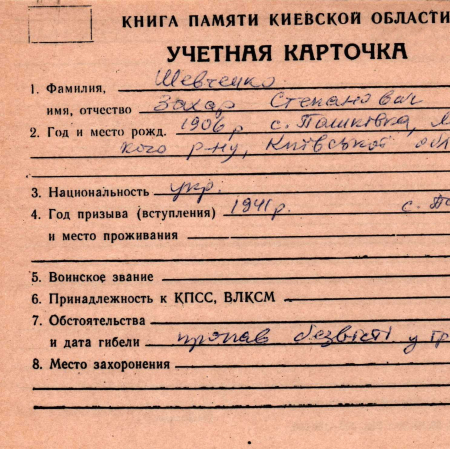 КНИГА ПАМЯТИ КИЕВСКОЙ ОБЛАСТИ
УЧЕТНАЯ КАРТОЧКА
1. Фамилия, Шевченко
имя, отчество Захар Степанович
2. Год и место рожд. 1906 р с. Пашківка,
кого р-ну, Київської обл
3. Национальность укр.
4. Год призыва (вступления) 1941 р. с.
и место проживания
5. Воинское звание
6. Принадлежность к КПСС, ВЛКСМ
7. Обстоятельства
и дата гибели пропав безвісті у
8. Место захоронения